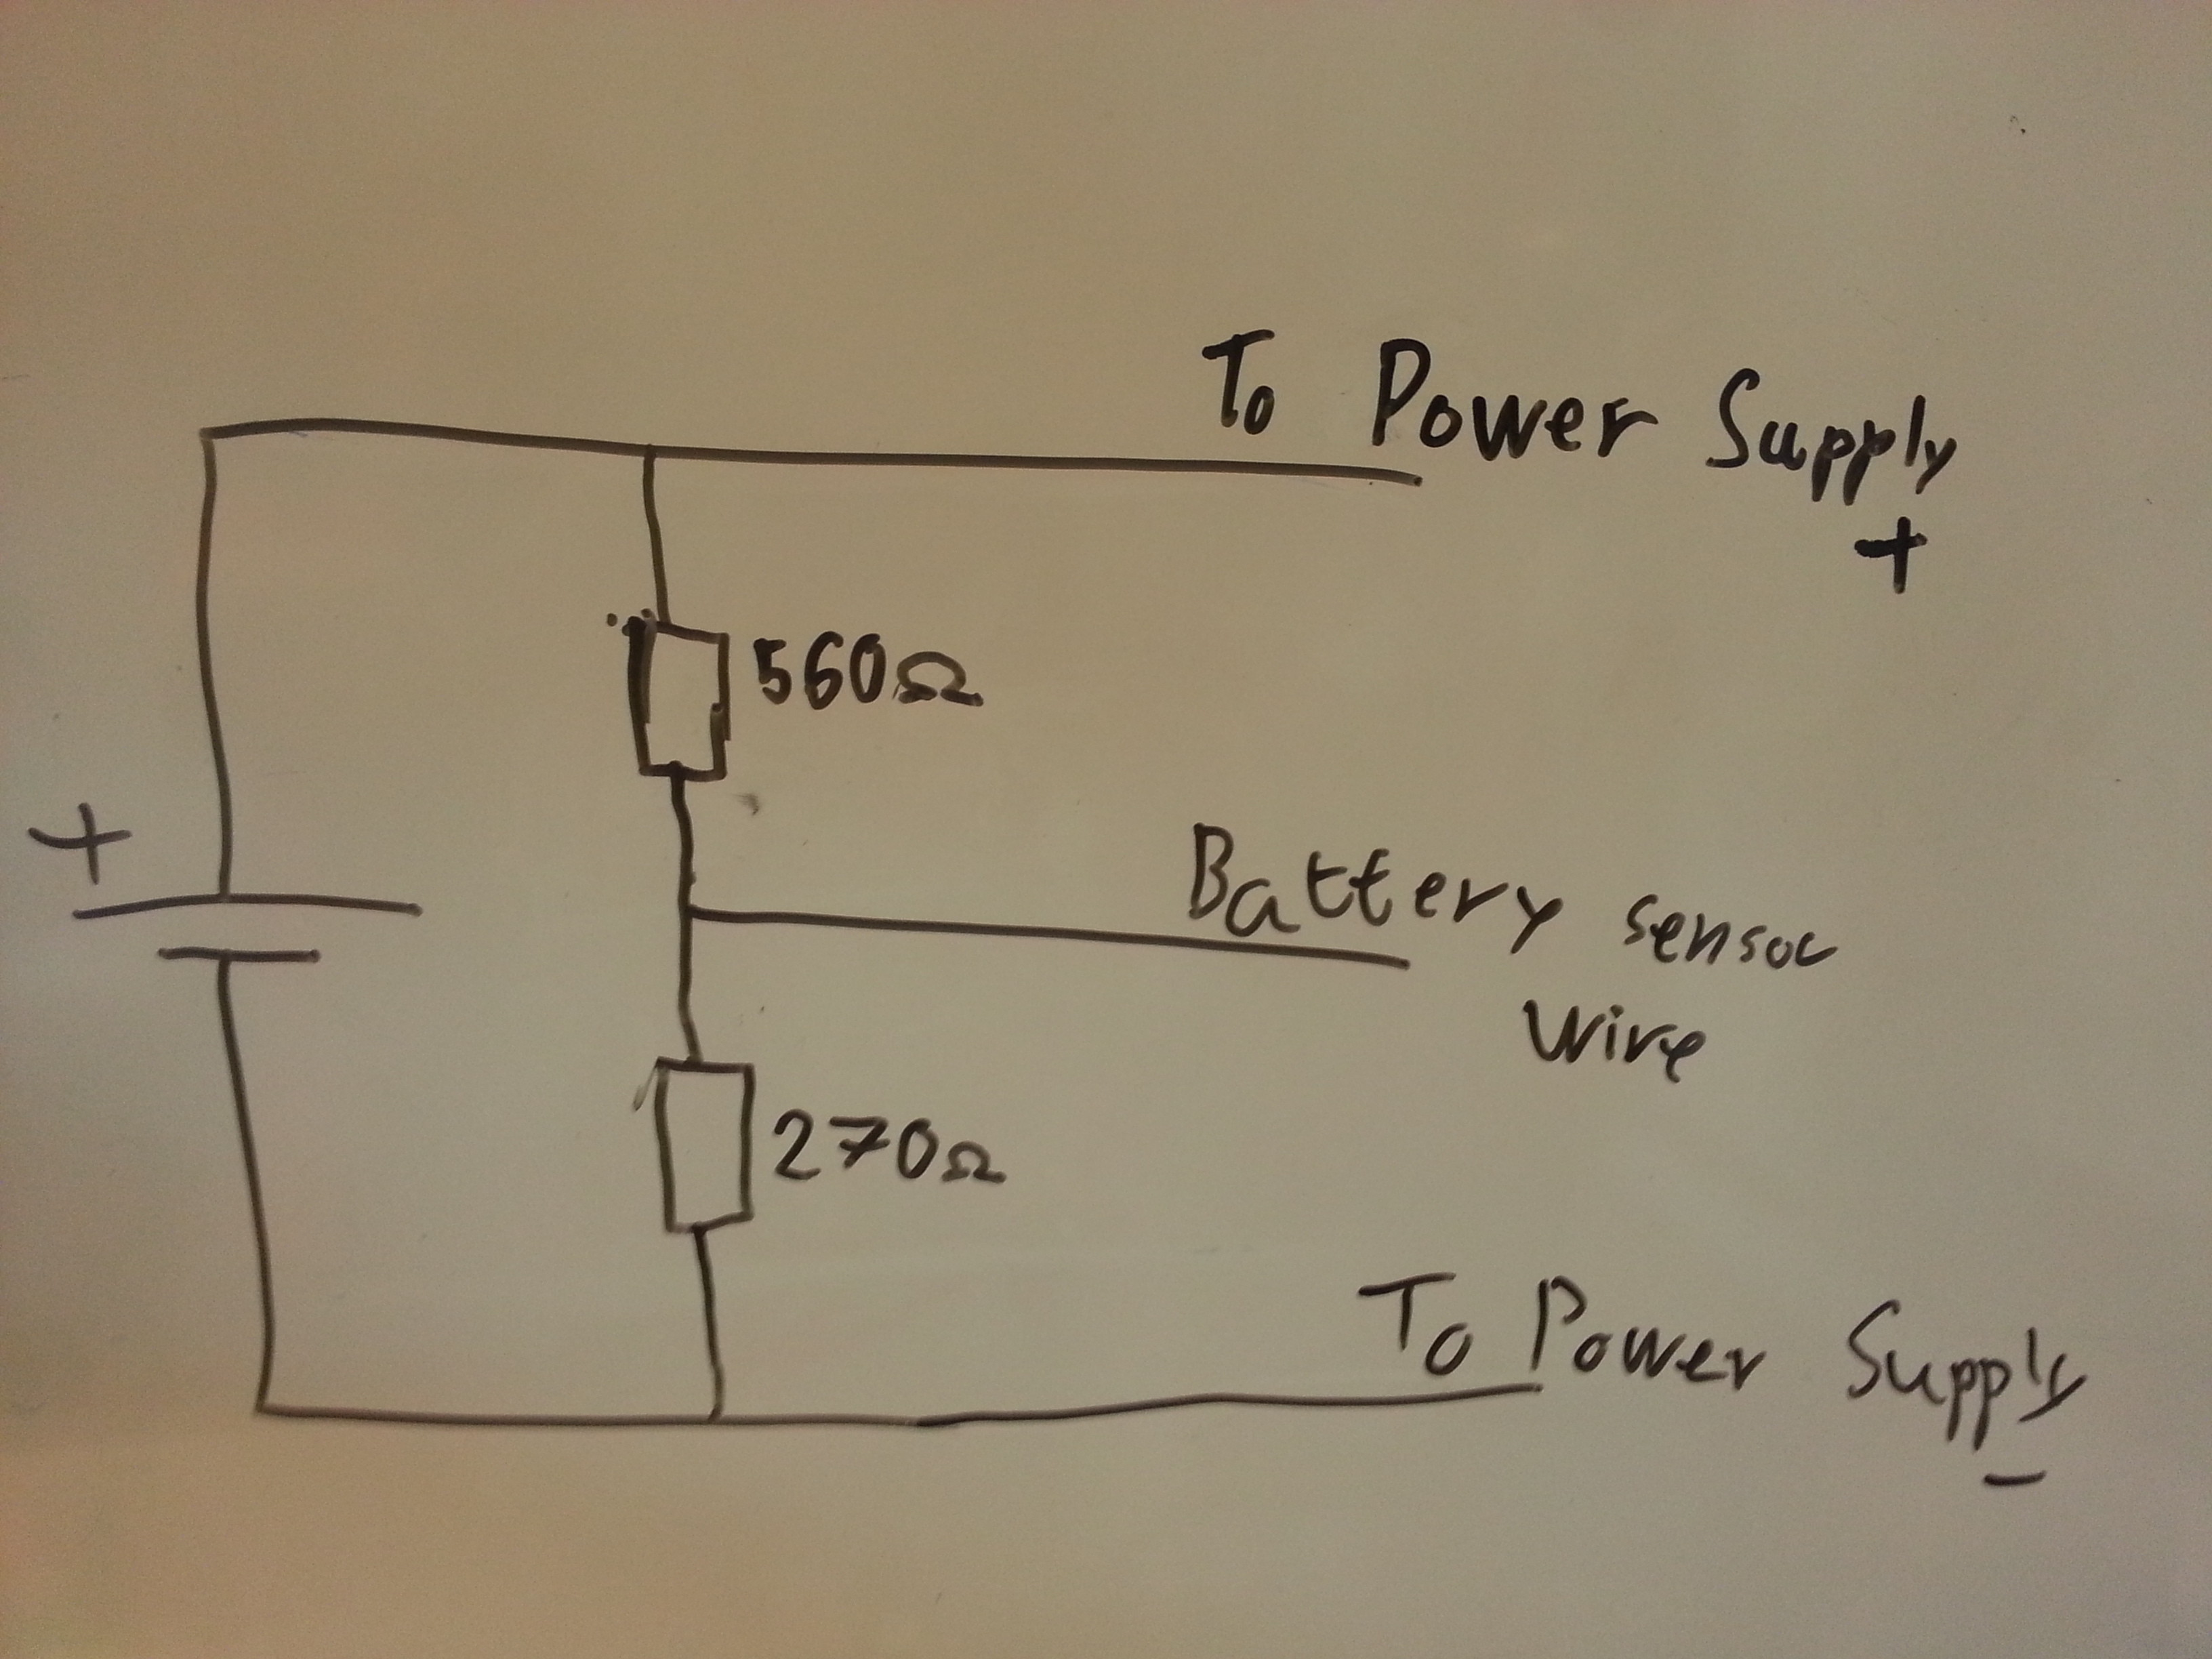 To Power Supply
+
560Ω
+
Battery sensor
wire
270Ω
To Power Supply
-